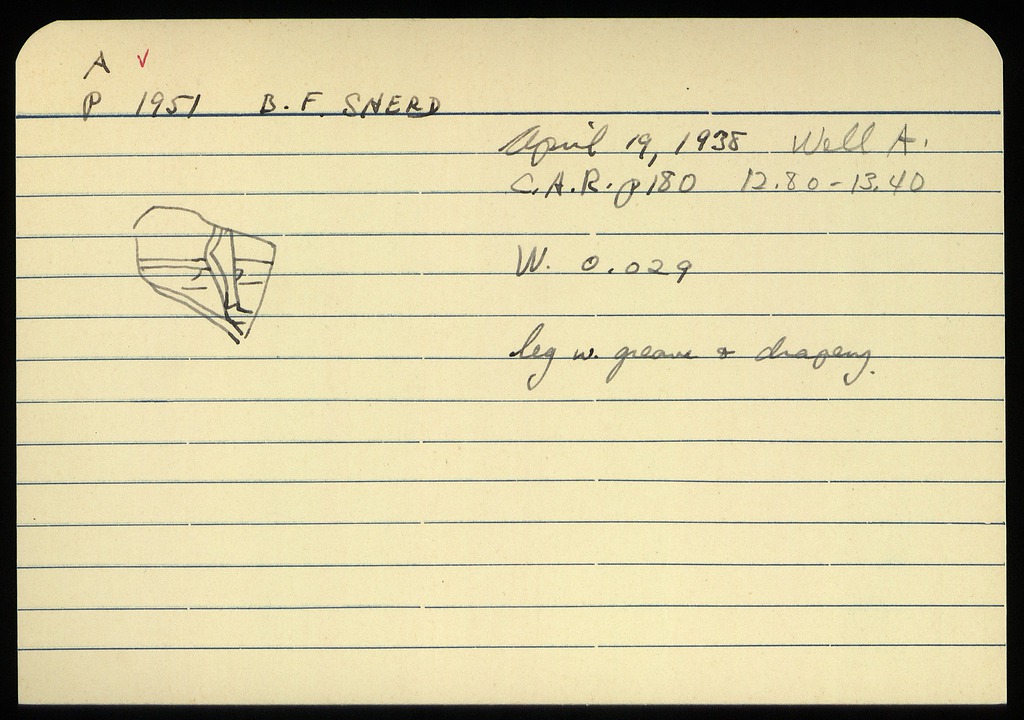 A ✓
P 1951 B.F. SHERD
April 19, 1938 Well A.
C.A.R. p180 12.80-13.40
W. 0.029
leg w. greave & drapery.